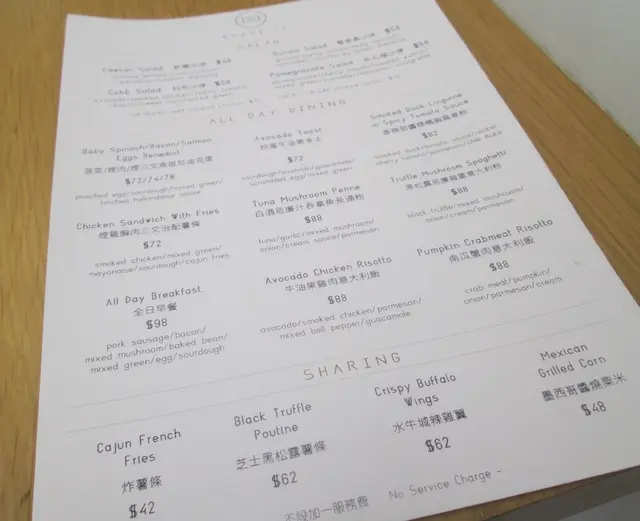 SALAD
Caesar Salad
Quinoa Salad
Cobb Salad
Pomegranate Salad
ALL DAY DINING
Baby Spinach/Bacon/Salmon
Eggs Benedict
$72/74/78
poached egg/sourdough/mixed green/
torched hollandaise sauce
Avocado Toast
$72
sourdough/avocado/guacamole/
scrambled egg/mixed green
Smoked Duck Linguine
in Spicy Tomato Sauce
$82
smoked duck/tomato sauce/rocket
cherry tomato/parmesan/chilli flake
Chicken Sandwich With Fries
煙雞胸肉三文治配薯條
$72
smoked chicken/mixed green/
mayonaise/sourdough/cajun fries
Tuna Mushroom Penne
白酒忌廉汁吞拿魚長通粉
$88
tuna/garlic/mixed mushroom/
onion/cream sauce/parmesan
Truffle Mushroom Spaghetti
$88
black truffle/mixed mushroom/
onion/cream/parmesan
All Day Breakfast
全日早餐
$98
pork sausage/bacon/
mixed mushroom/baked bean/
mixed green/egg/sourdough
Avocado Chicken Risotto
牛油果雞肉意大利飯
$88
avocado/smoked chicken/parmesan/
mixed bell pepper/guacamole
Pumpkin Crabmeat Risotto
南瓜蟹肉意大利飯
$88
crab meat/pumpkin/
onion/parmesan/cream
SHARING
Cajun French
Fries
炸薯條
$42
Black Truffle
Poutine
芝士黑松露薯條
$62
Crispy Buffalo
Wings
水牛城辣雞翼
$62
Mexican
Grilled Corn
墨西哥醬燒粟米
$48
不設加一服務費 No Service Charge -